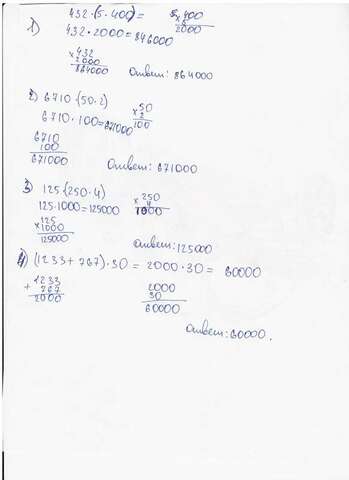 1) 432·(5·400)=
432·2000=846000
×400
5
2000
×432
2000
864000
Ответ: 864000
2) 6710(50·2)
6710·100=671000
×50
2
100
6710
100
671000
Ответ: 671000
3) 125(250·4)
125·1000=125000
×250
4
1000
×125
1000
125000
Ответ: 125000
4) (1233+767)·30=2000·30= 60000
+1233
767
2000
2000
30
60000
Ответ: 60000.